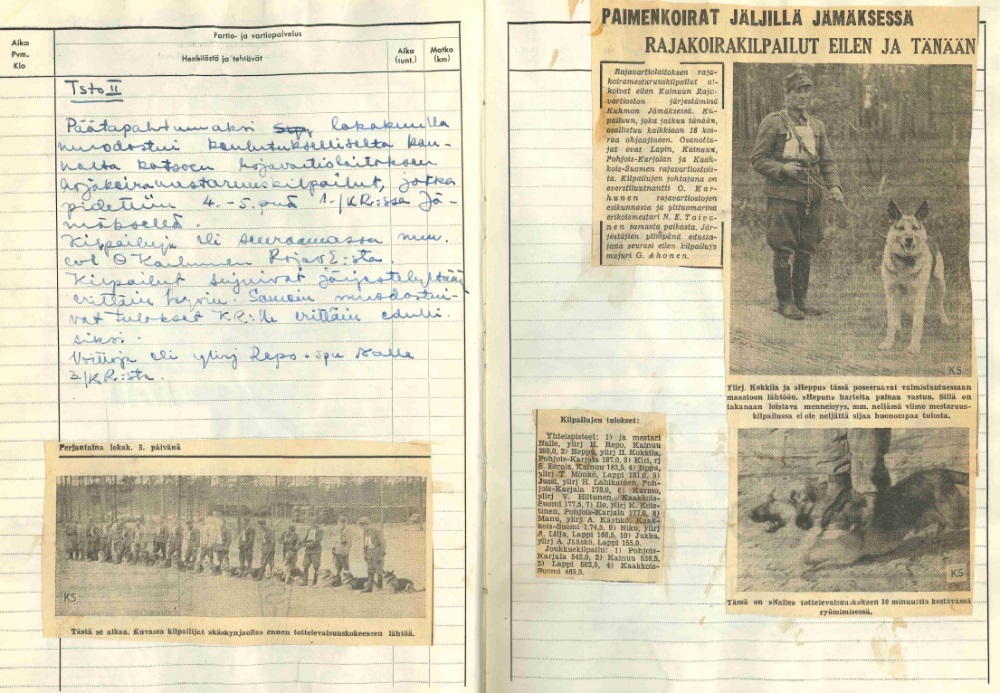 Aika
Pvm.
Klo
Partio- ja vartiopalvelus
Henkilöstö ja tehtävät
Aika
(tunt.)
Matka
(km)
Tsto II
Päätapahtumaksi lokakuulla
muodostui koulutukselliselta kan-
nalta katsoen Rajavartiolaitoksen
Rajakoiramestaruuskilpailut, jotka
pidettiin 4.-5. pnä 1./KR:ssa Jä-
mäksellä.
Kilpailuja oli seuraamassa mm.
O Karhunen RajavE:sta.
Kilpailut sujuivat järjestelyltään
erittäin hyvin. Samoin muodostui-
vat tulokset K.R:lle erittäin edulli-
siksi.
Voittaja oli ylirj Repo + Nalle
3./KR:sta.
Perjantaina lokak. 5. päivänä
KS
Tästä se alkaa. Kuvassa kilpailijat »käskynjaolla» ennen tottelevaisuuskokeeseen lähtöä.
PAIMENKOIRAT JÄLJILLÄ JÄMÄKSESSÄ
RAJAKOIRAKILPAILUT EILEN JA TÄNÄÄN
Rajavartiolaitoksen raja-
koiramestaruuskilpailut al-
koivat eilen Kainuun Raja-
vartioston järjestäminä
Kuhmon Jämäksessä. Kil-
pailuun, joka jatkuu tänään,
osallistuu kaikkiaan 16 koi-
raa ohjaajineen. Osanotta-
jat ovat Lapin, Kainuun,
Pohjois-Karjalan ja Kaak-
kois-Suomen rajavartiostois-
ta. Kilpailujen johtajana on
everstiluutnantti O. Kar-
hunen rajavartiostojen
esikunnasta ja ylituomarina
erikoismestari N. E. Toivo-
nen samasta paikasta. Jär-
jestäjien ylimpänä edusta-
jana seurasi eilen kilpailuja
majuri G. Ahonen.
KS
Ylirj. Kokkila ja »Heppu» tässä poseeraavat valmistautuessaan
maastoon lähtöön. »Hepun» harteita painaa vastuu. Sillä on
takanaan loistava menneisyys, mm. neljässä viime mestaruus-
kilpailussa ei ole neljättä sijaa huonompaa tulosta.
Kilpailujen tulokset:
Yhteispisteet: 1) ja mestari
Nalle, ylirj H. Repo, Kainuu
193,0, 2) Heppu, ylirj H. Kokkila,
Pohjois-Karjala 187,0, 3) Kiri, rj
S. Eerola, Kainuu 182,5, 4) Jippa,
ylirj T. Mönkö, Lappi 181,0, 5)
Jussi, ylirj H. Lahikainen, Poh-
jois-Karjala 178,0, 6) Kurmo,
ylirj V. Hiltunen, Kaakkois-
Suomi 177,5, 7) Ilo, ylirj K. Kois-
tinen, Pohjois-Karjala 177,0, 8)
Manu, ylirj A. Käyhkö, Kaak-
kois-Suomi 174,5, 9) Niku, ylirj
A. Lilja, Lappi 166,5, 10) Jukka,
ylirj A. Jääskö, Lappi 155,0.
Joukkuekilpailu: 1) Pohjois-
Karjala 542,0, 2) Kainuu 526,5,
3) Lappi 502,5, 4) Kaakkois-
Suomi 465,5.
KS
Tässä on »Nalle» tottelevaisuuskokeen 10 minuuttia kestävässä
ryömimisessä.